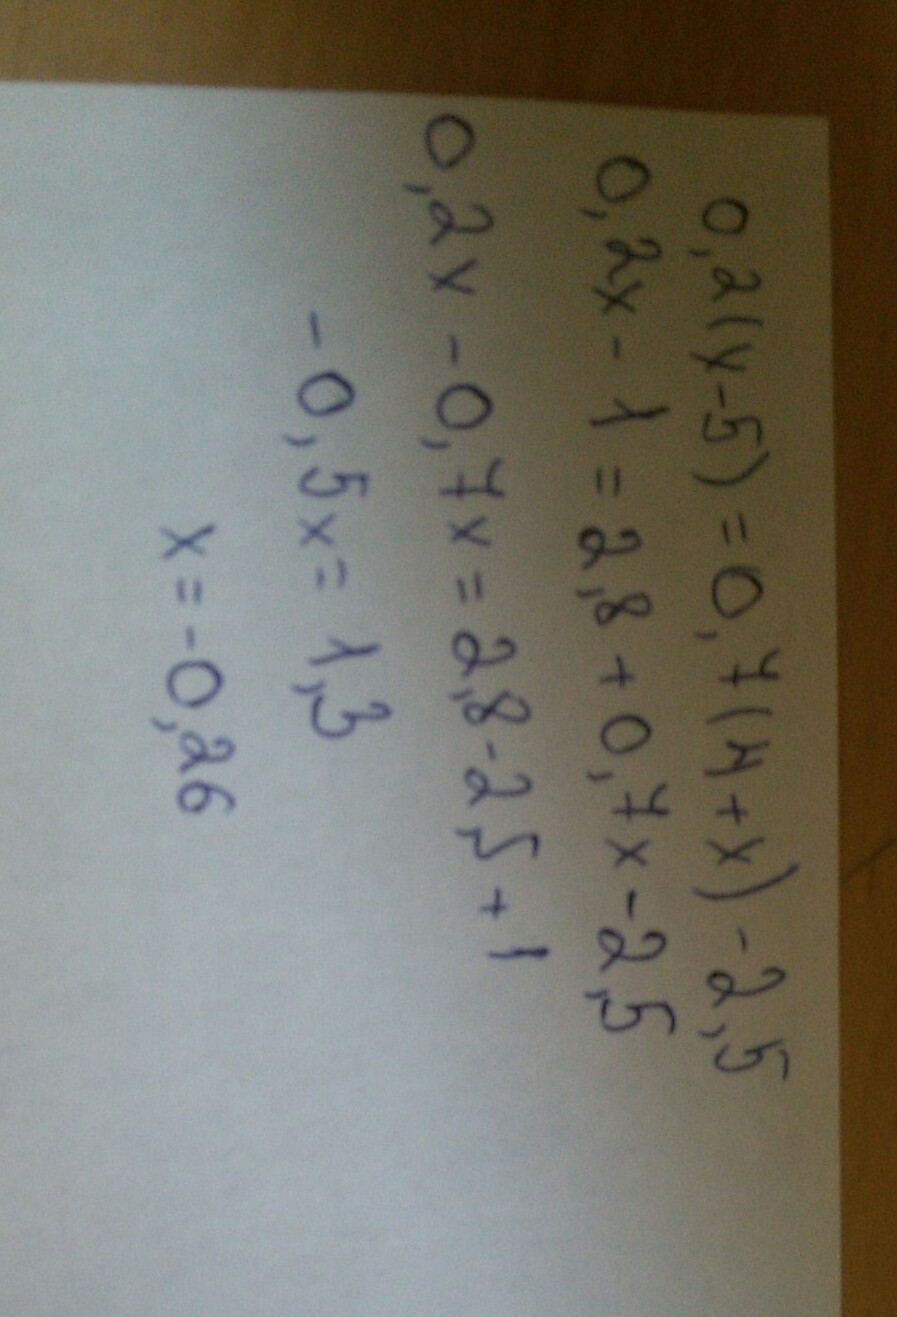 0,2(x-5) = 0,7(4+x) -2,5
0,2x - 1 = 2,8 + 0,7x - 2,5
0,2x - 0,7x = 2,8-2,5+1
-0,5x = 1,3
x = -0,26